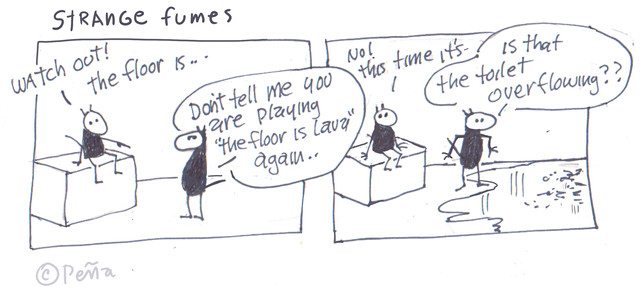 STRANGE fumes
WATCH OUT!
the floor is...
Don't tell me you
are playing
"the floor is lava"
again..
NO!
this time it's-
is that
the toilet
overflowing??
© Peña